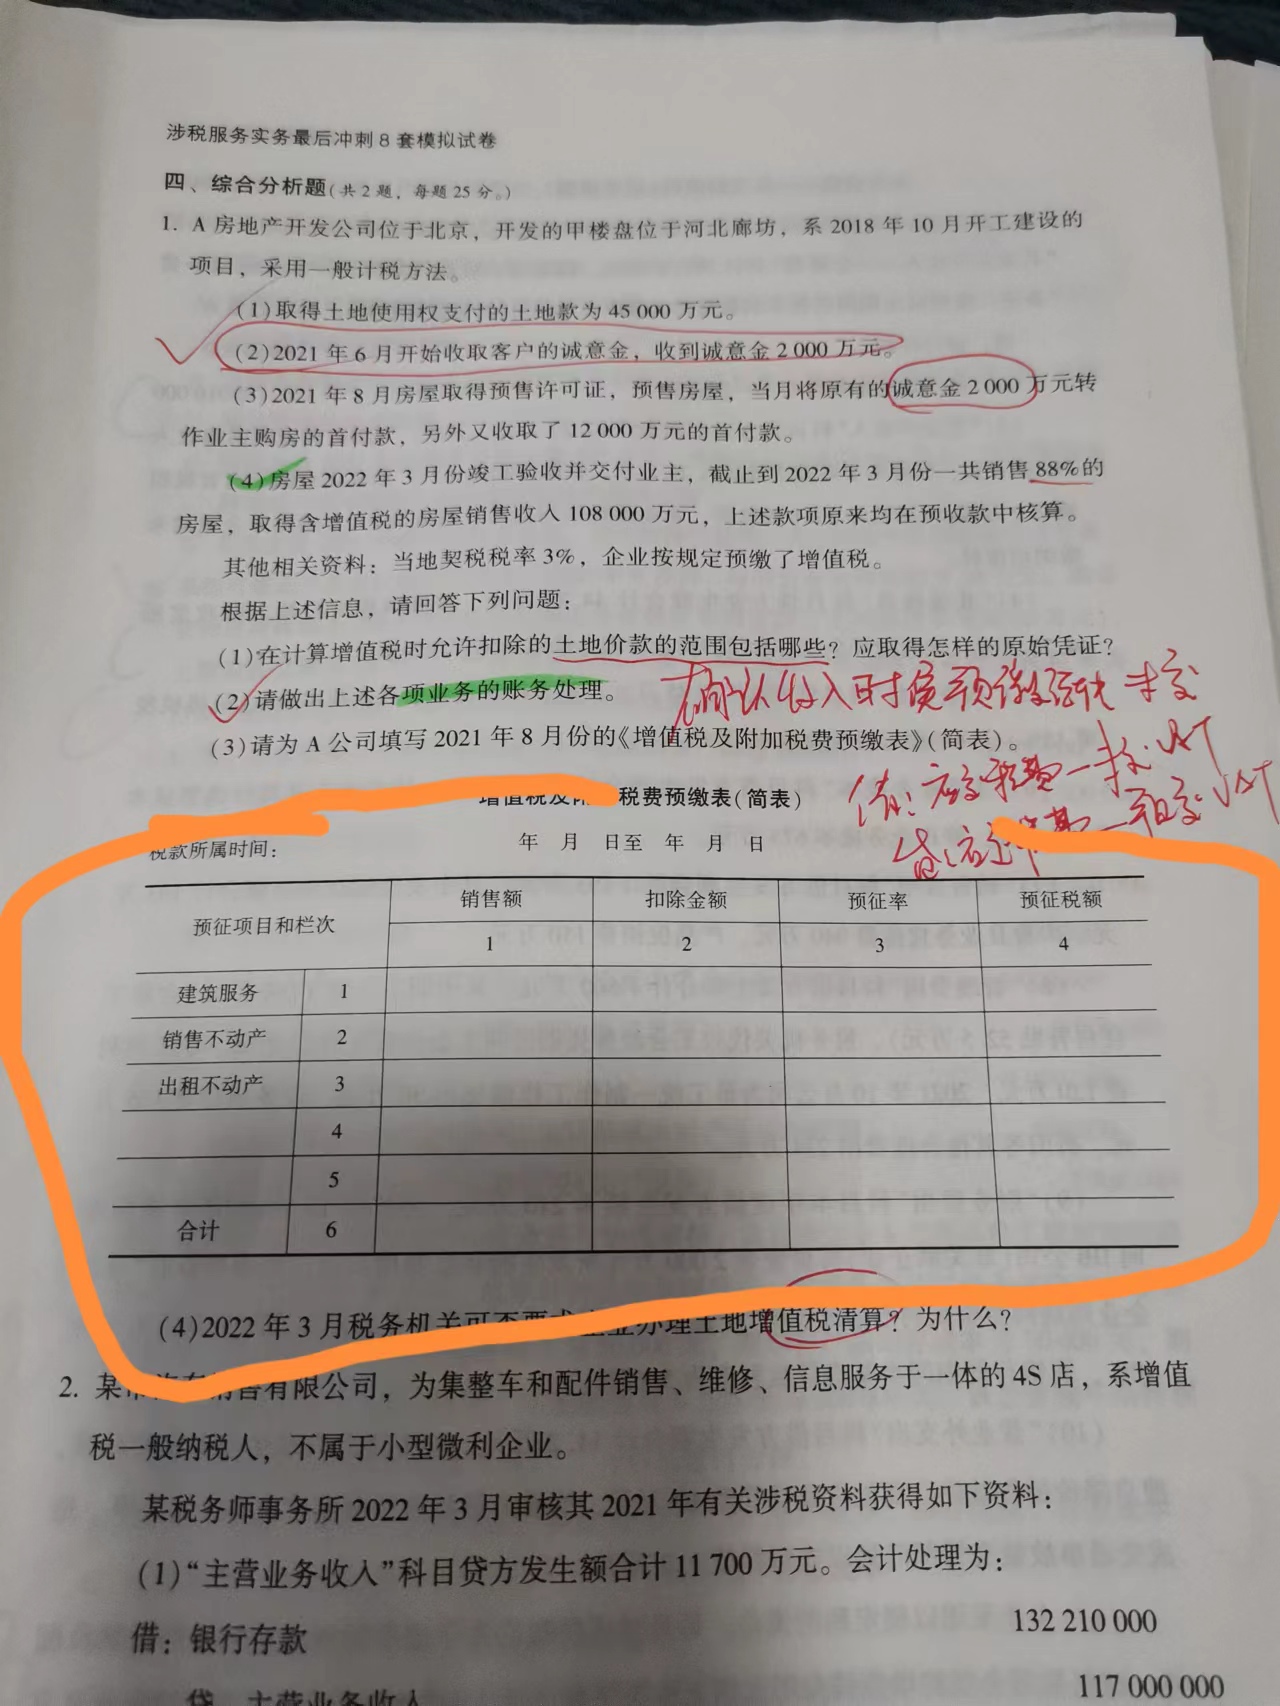 涉税服务实务最后冲刺8套模拟试卷
四、综合分析题(共2题，每题25分。)
1. A房地产开发公司位于北京，开发的甲楼盘位于河北廊坊，系2018年10月开工建设的
项目，采用一般计税方法。
(1)取得土地使用权支付的土地款为45 000万元。
(2)2021年6月开始收取客户的诚意金，收到诚意金2 000万元。
(3)2021年8月房屋取得预售许可证，预售房屋，当月将原有的诚意金2 000万元转
作业主购房的首付款，另外又收取了12 000万元的首付款。
(4)房屋2022年3月份竣工验收并交付业主，截止到2022年3月份一共销售88%的
房屋，取得含增值税的房屋销售收入108 000万元，上述款项原来均在预收款中核算。
其他相关资料：当地契税税率3%，企业按规定预缴了增值税。
根据上述信息，请回答下列问题：
(1)在计算增值税时允许扣除的土地价款的范围包括哪些？应取得怎样的原始凭证？
(2)请做出上述各项业务的账务处理。
确认收入时
(3)请为A公司填写2021年8月份的《增值税及附加税费预缴表》(简表)。
税费预缴表(简表)
税款所属时间： 年 月 日至 年 月 日
预征项目和栏次 销售额 扣除金额 预征率 预征税额
1 2 3 4
建筑服务 1
销售不动产 2
出租不动产 3
4
5
合计 6
(4)2022年3月税务机关可否要求企业办理土地增值税清算？为什么？
2. 某 销售有限公司，为集整车和配件销售、维修、信息服务于一体的4S店，系增值
税一般纳税人，不属于小型微利企业。
某税务师事务所2022年3月审核其2021年有关涉税资料获得如下资料：
(1)“主营业务收入”科目贷方发生额合计11 700万元。会计处理为：
借：银行存款 132 210 000
贷：主营业务收入 117 000 000